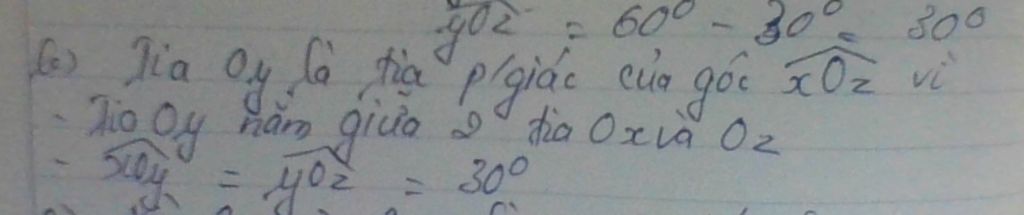 yOz = 60° - 30° = 30°
b) Tia Oy là tia p/giác của góc xOz vì
- Tia Oy nằm giữa 2 tia Ox và Oz
- xOy = yOz = 30°